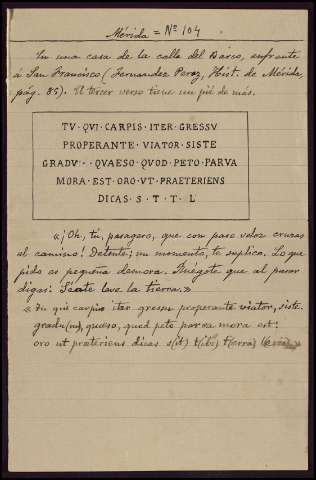 Mérida = Nº 104
En una casa de la calle del Barco, enfrente
á San Francisco (Fernandez Perez, Hist. de Mérida,
pág. 85). El tercer verso tiene un pié de más.
TV · QVI · CARPIS · ITER · GRESSV
PROPERANTE · VIATOR · SISTE
GRADV · · QVAESO · QVOD · PETO · PARVA
MORA · EST · ORO · VT · PRAETERIENS
DICAS · S · T · T · L
«¡Oh, tú, pasagero, que con paso veloz cruzas
el camino! Detente; un momento, te suplico. Lo que
pido es pequeña demora. Ruégote que al pasar
digas: Séate leve la tierra.»
«Tu qui carpis iter gressu properante viator, siste.
gradu(m), quaeso, quod peto parva mora est:
oro ut praeteriens dicas s(it) t(ibi) t(erra) l(evis).»